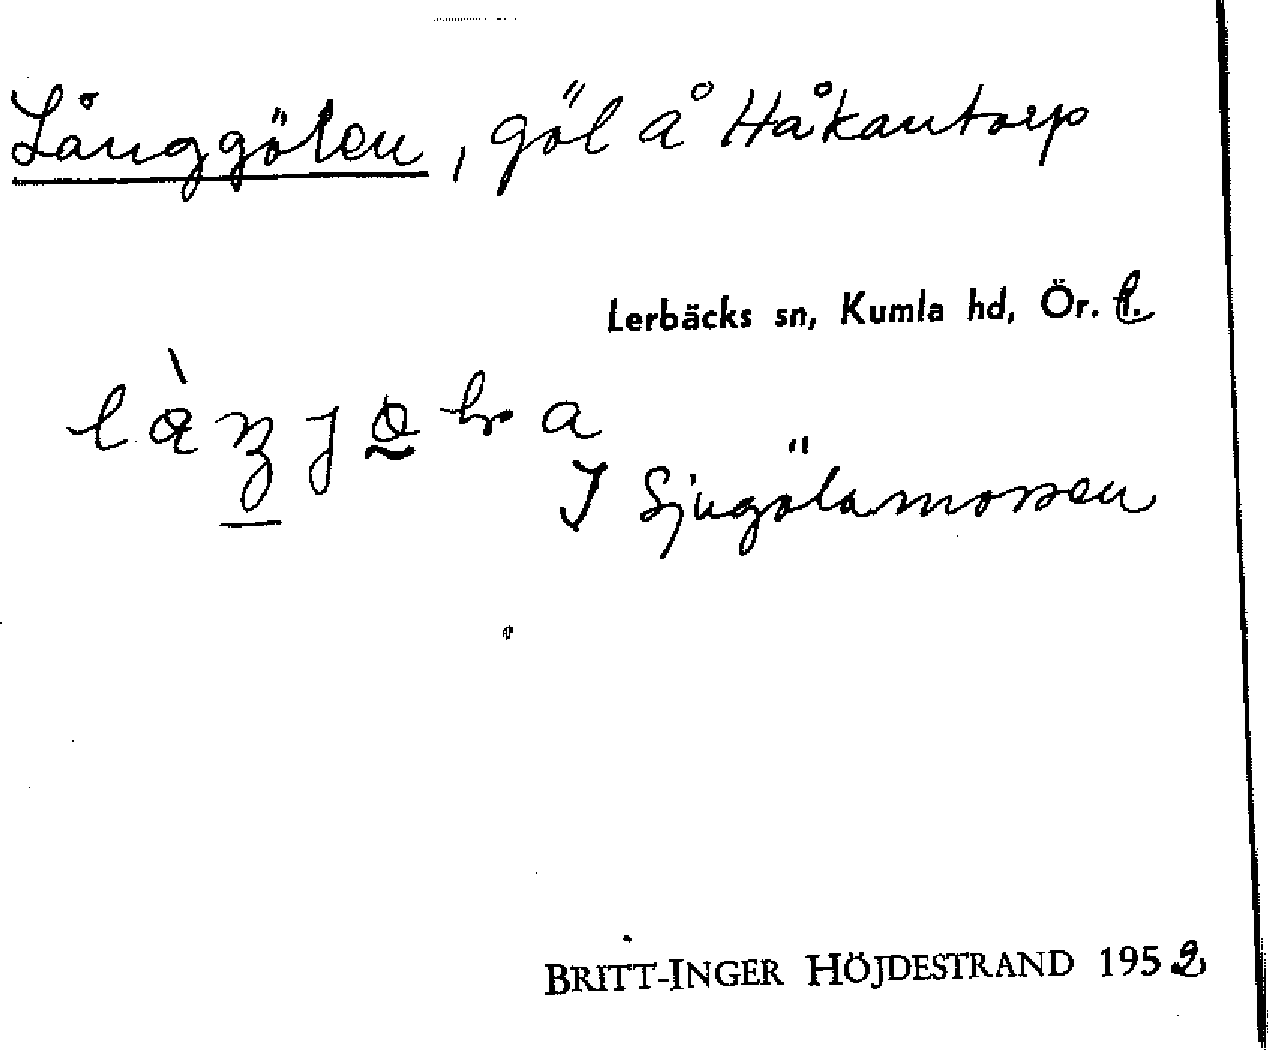 Långgölen, göl å Håkantorp
Lerbäcks sn, Kumla hd, Ör. l.
I Sjugölamossen
BRITT-INGER HÖJDESTRAND 1952